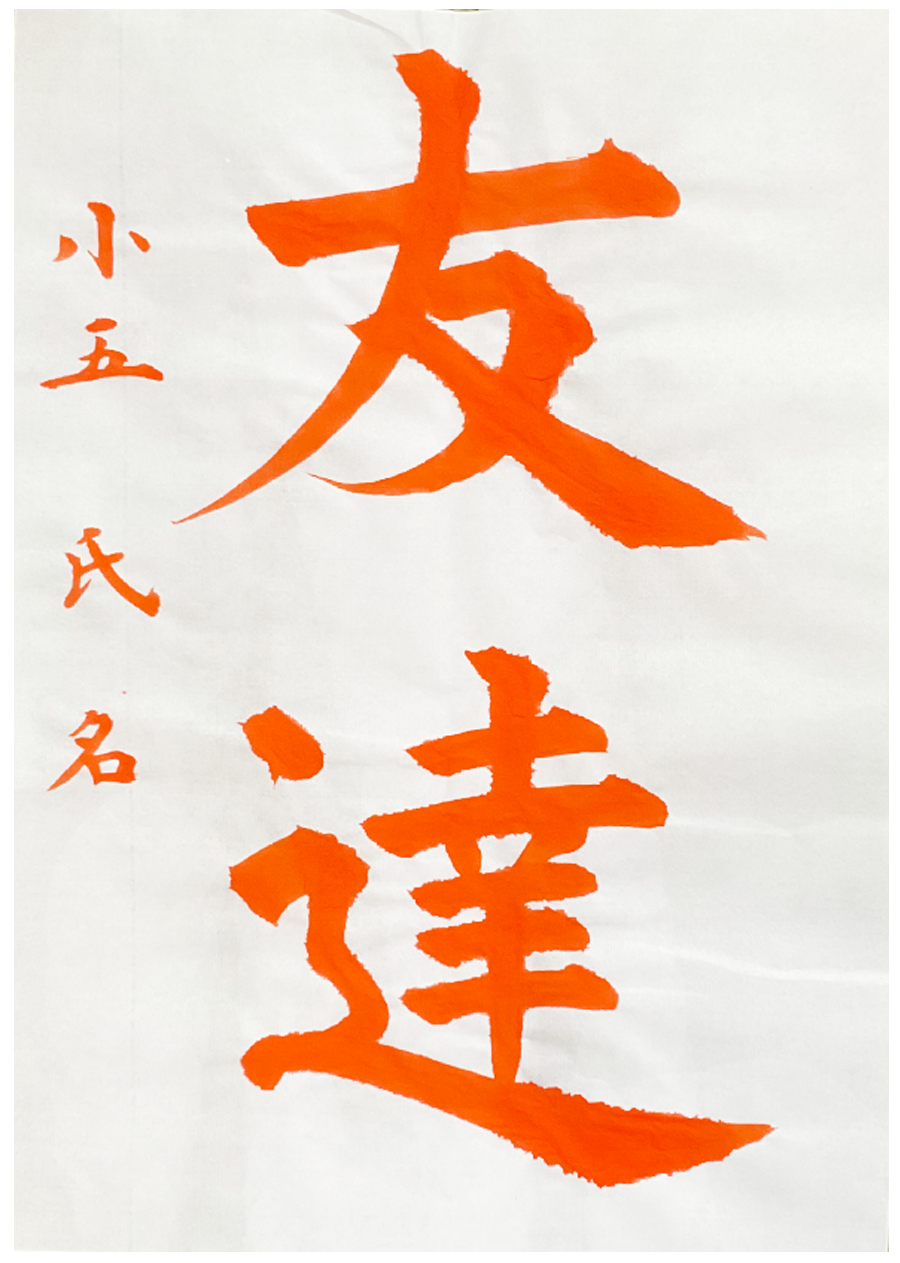 友達
小五 氏名